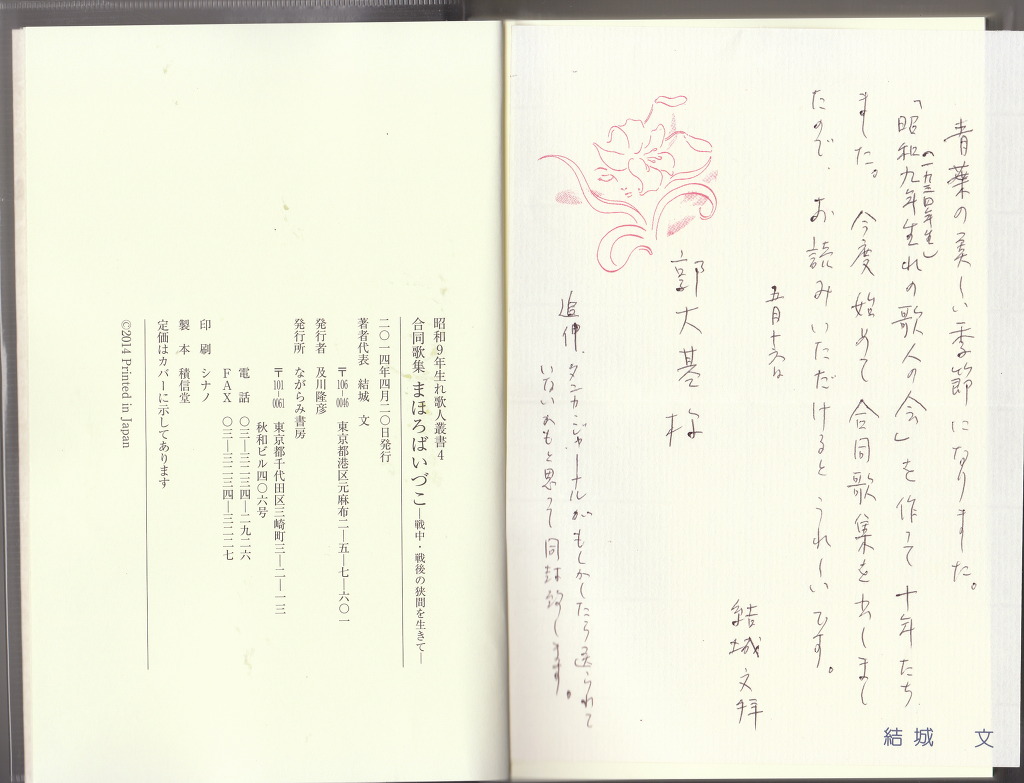 青葉の美しい季節になりました。
「昭和九年生れの歌人の会」を作って十年たち
(一九三四年生)
ました。今度始めて合同歌集を出しまし
たので、お読みいただけるとうれしいです。
五月十六日
結城文拝
郭大基様
追伸、タンカジャーナルがもしかしたら送られて
いないかもと思って同封致します。
結城 文
昭和9年生れ歌人叢書4
合同歌集 まほろばいづこ―戦中・戦後の狭間を生きて―
二〇一四年四月二〇日発行
著者代表 結城 文
〒106-0046 東京都港区元麻布二―五―七―六〇一
発行者 及川隆彦
発行所 ながらみ書房
〒101-0061 東京都千代田区三崎町三―二―一三
秋和ビル四〇六号
電話 〇三―三二三四―二九二六
FAX 〇三―三二三四―三二二七
印刷 シナノ
製本 積信堂
定価はカバーに示してあります
©2014 Printed in Japan